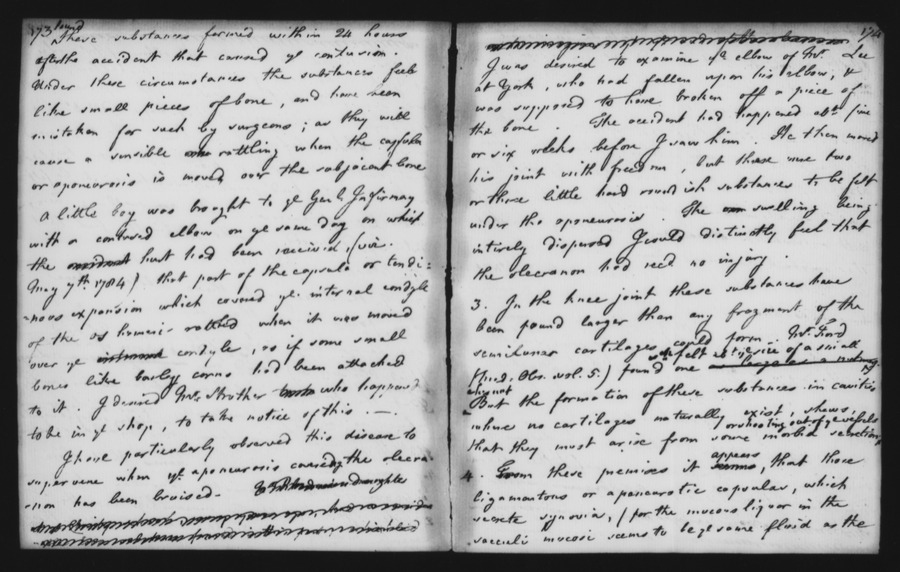 173 found
These substances formed within 24 hours
after the accident that caused ye contusion.
Under these circumstances the substances feel
like small pieces of bone, and have been
mistaken for such by surgeons; as they will
cause a sensible rattling when the capsular
or aponeurosis is moved over the subjacent bone
A little boy was brought to ye Genl Infirmary
with a contused elbow on ye same day on which
the hurt had been received, (viz.
May 7th 1784) that part of the capsule or tendi=
=nous expansion which covered ye internal condyle
of the os humeri rattled when it was moved
over ye condyle, as if some small
bones like barley corns had been attached
to it. I desired Mr. Strother who happened
to be in ye shop, to take notice of this. —
I have particularly observed this disease to
supervene when ye aponeurosis covering the olecra-
-non has been bruised.
174
I was desired to examine ye elbow of Mr. Lee
at York, who had fallen upon his elbow, &
was supposed to have broken off a piece of
the bone. The accident had happened abt. five
or six weeks before I saw him. He then moved
his joint with freedom, but there were two
or three little hard roundish substances to be felt
under the aponeurosis. The swelling being
intirely dispersed I could distinctly feel that
the olecranon had recd no injury.
3. In the knee joint these substances have
been found larger than any fragment of the
semilunar cartilages could form. Mr. Ford
(Med. Obs. vol. 5.) found one as large as a nutmeg
felt ye size of a small
But the formation of these substances in cavities
where no cartilages naturally exist, shews,
or shooting out of ye vessels
that they must arise from some morbid secretion
appears
4. From these premises it seems, that those
ligamentous or aponeurotic capsulas, which
secrete synovia, (for the mucous liquor in the
sacculi mucosi seems to be ye same fluid as the